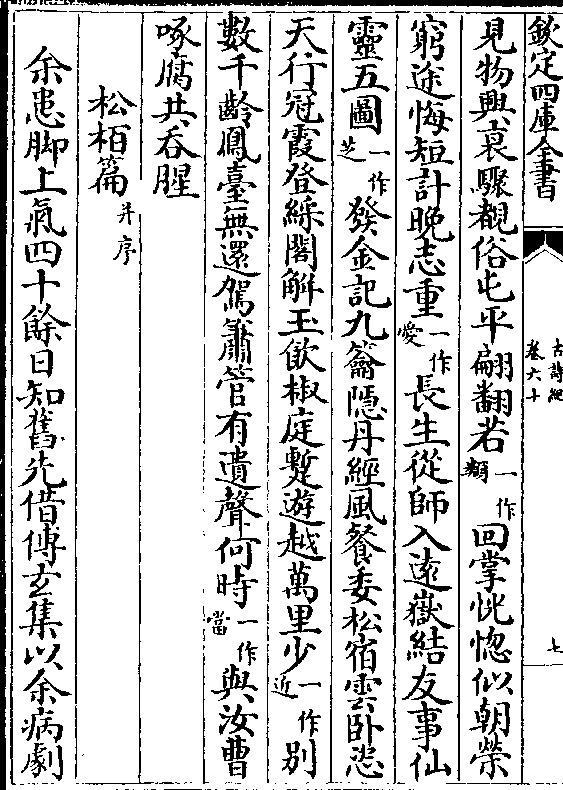 欽定四庫全書
古詩紀
卷六十
七
見物興衰驟覩俗屯平翩翻若一作類回掌恍惚似朝榮
窮途悔短計晚志重一作愛長生從師入遠嶽結友事仙
靈五圖一作芝發金記九籥隱丹經風餐委松宿雲卧恣
天行冠霞登綵閣解玉飲椒庭蹔遊越萬里少一作近别
數千齡鳳臺無還駕簫管有遺聲何時一作當與汝曹
啄腐共吞腥
松栢篇并序
余患脚上氣四十餘日知舊先借傅玄集以余病劇